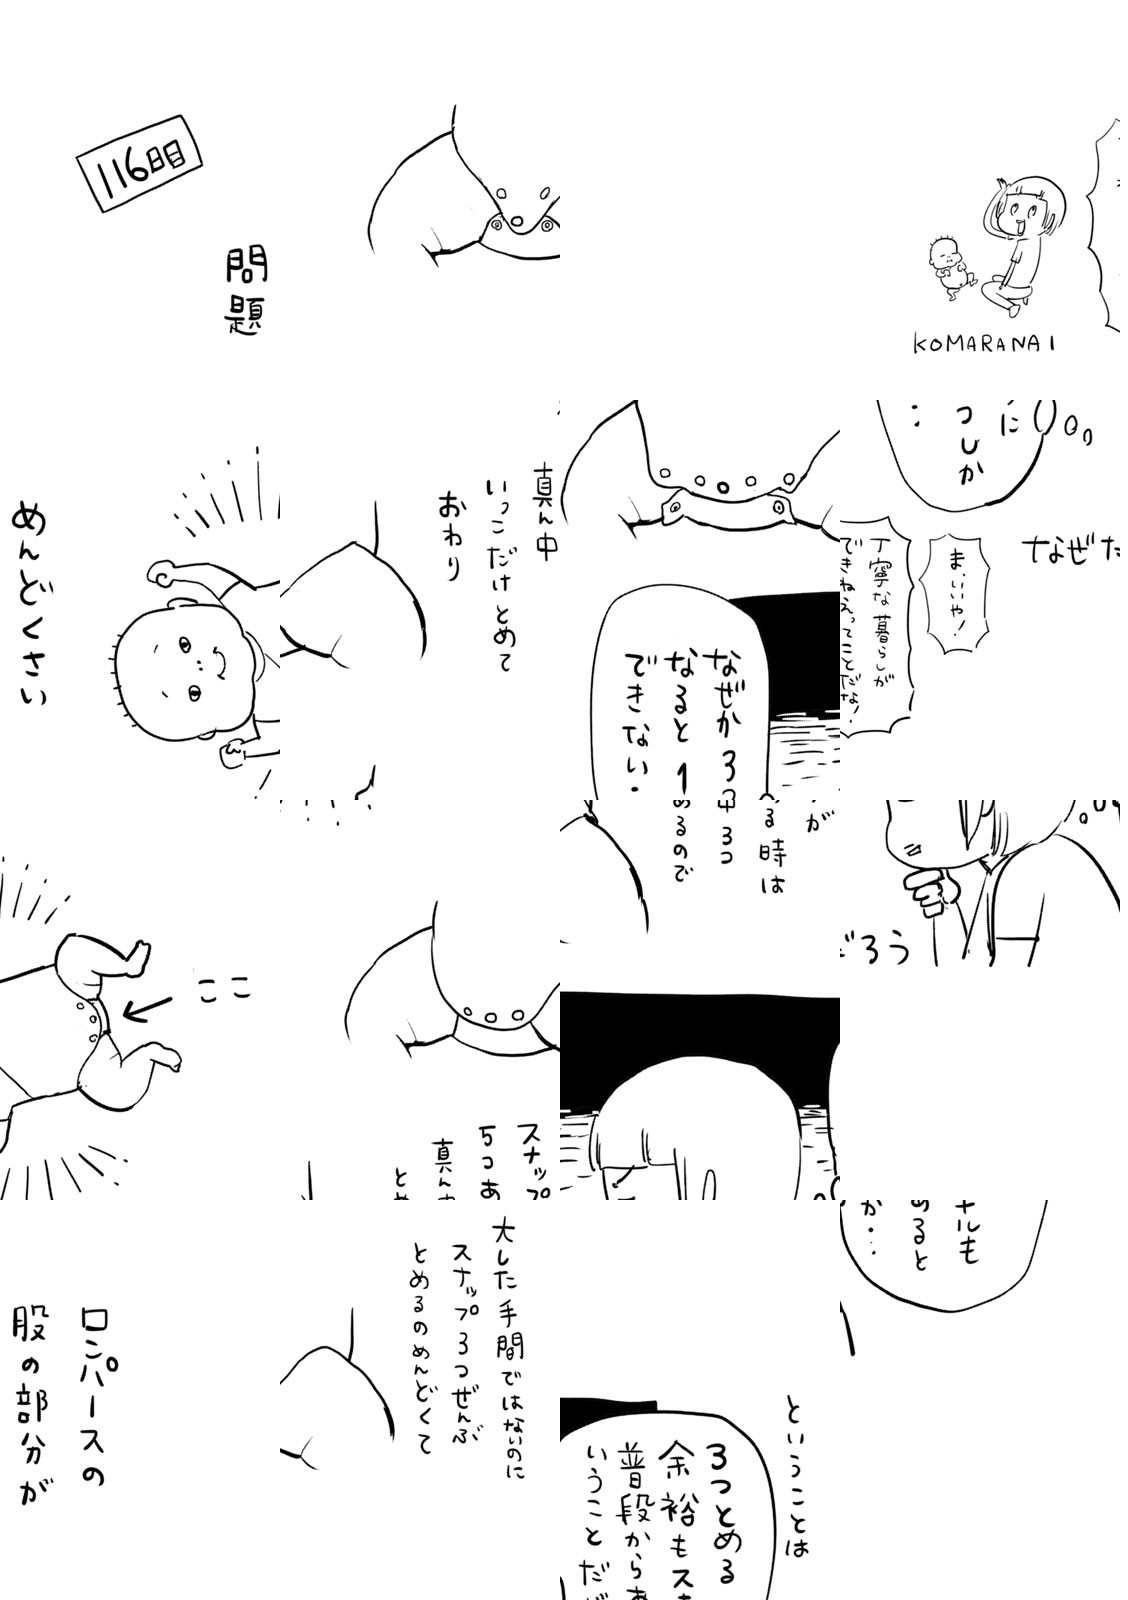 116日目
問題
KOMARANAI
めんどくさい
真ん中
いっこだけとめて
おわり
なぜか3
なると1
できない・
に
つしか
なぜ
ま、いいや!
丁寧な暮らしが
できねえってことだな!
ここ
スナップ
5つあ
真ん中
と
が
る時は
3つ
めるので
ろう
ロンパースの
股の部分が
大した手間ではないのに
スナップ3つぜんぶ
とめるのめんどくて
ということは
3つとめる
余裕もス
普段から
いうことだ
ルも
めると
か…